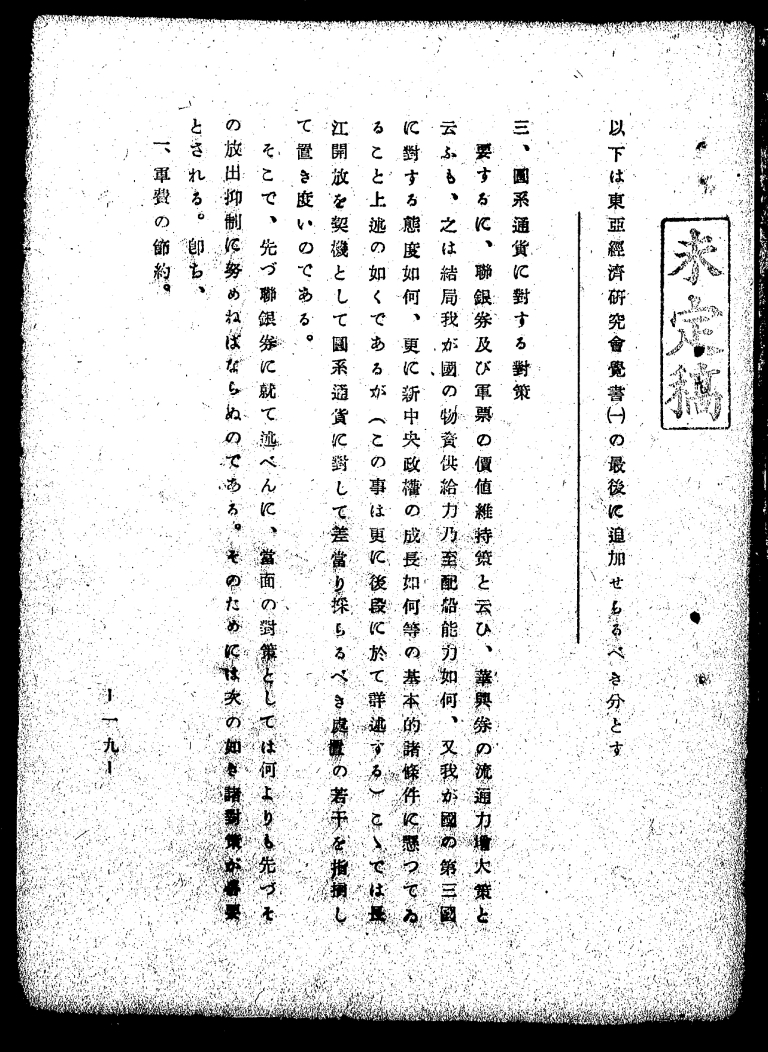 未定稿
以下は東亞經濟研究會覺書㈠の最後に追加せらるべき分とす
三、圓系通貨に對する對策
要するに、聯銀券及び軍票の價値維持策と云ひ、華興券の流通力增大策と
云ふも、之は結局我が國の物資供給力乃至配船能力如何、又我が國の第三國
に對する態度如何、更に新中央政權の成長如何等の基本的諸條件に懸つてゐ
ること上述の如くであるが（この事は更に後段に於て詳述する）こゝでは長
江開放を契機として圓系通貨に對して差當り採らるべき處置の若干を指摘し
て置き度いのである。
そこで、先づ聯銀券に就て述べんに、當面の對策としては何よりも先づそ
の放出抑制に努めねばならぬのである。そのためには次の如き諸對策が必要
とされる。卽ち、
一、軍費の節約。
ー一九ー